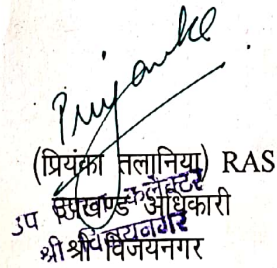 Priyanka
(प्रियंका तलानिया) RAS
उपखण्ड अधिकारी
श्री विजयनगर
उप कलेक्टर
श्री विजयनगर